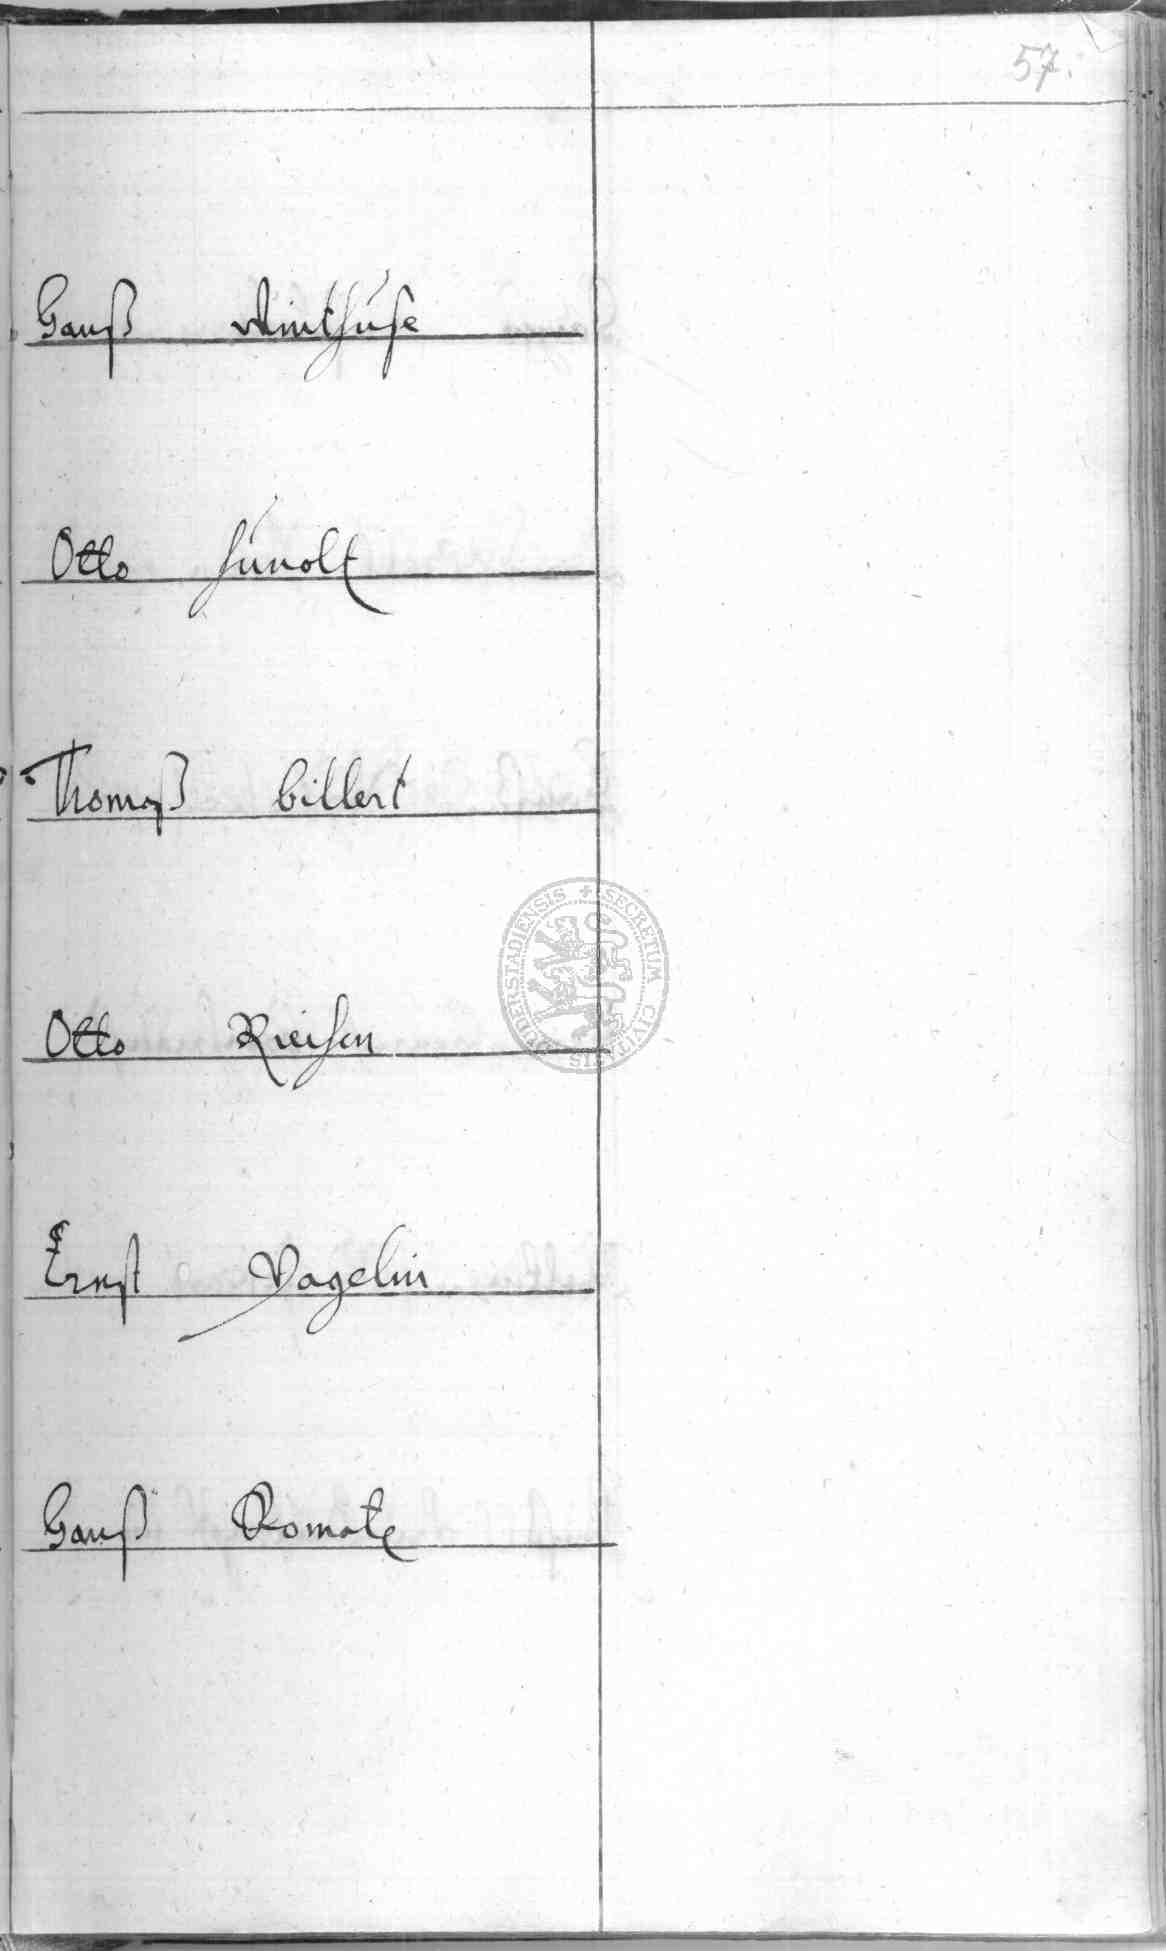 57.
Hanß Amthuse
Otto Hunolt
Thomaß Hillert
Otto Kreisen
Ernst Vagelin
Hanß Komate
SECRETUM CIVITATIS DVDERSTADIENSIS